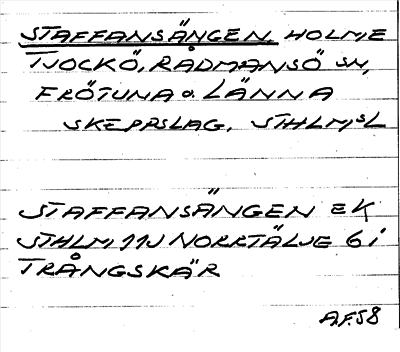 STAFFANSÄNGEN, HOLME
TJOCKÖ, RÅDMANSÖ SN,
FRÖTUNA O. LÄNNA
SKEPPSLAG, STHLMSL
STAFFANSÄNGEN EK
STHLM 11J NORRTÄLJE 6 i
TRÅNGSKÄR
A.F.58